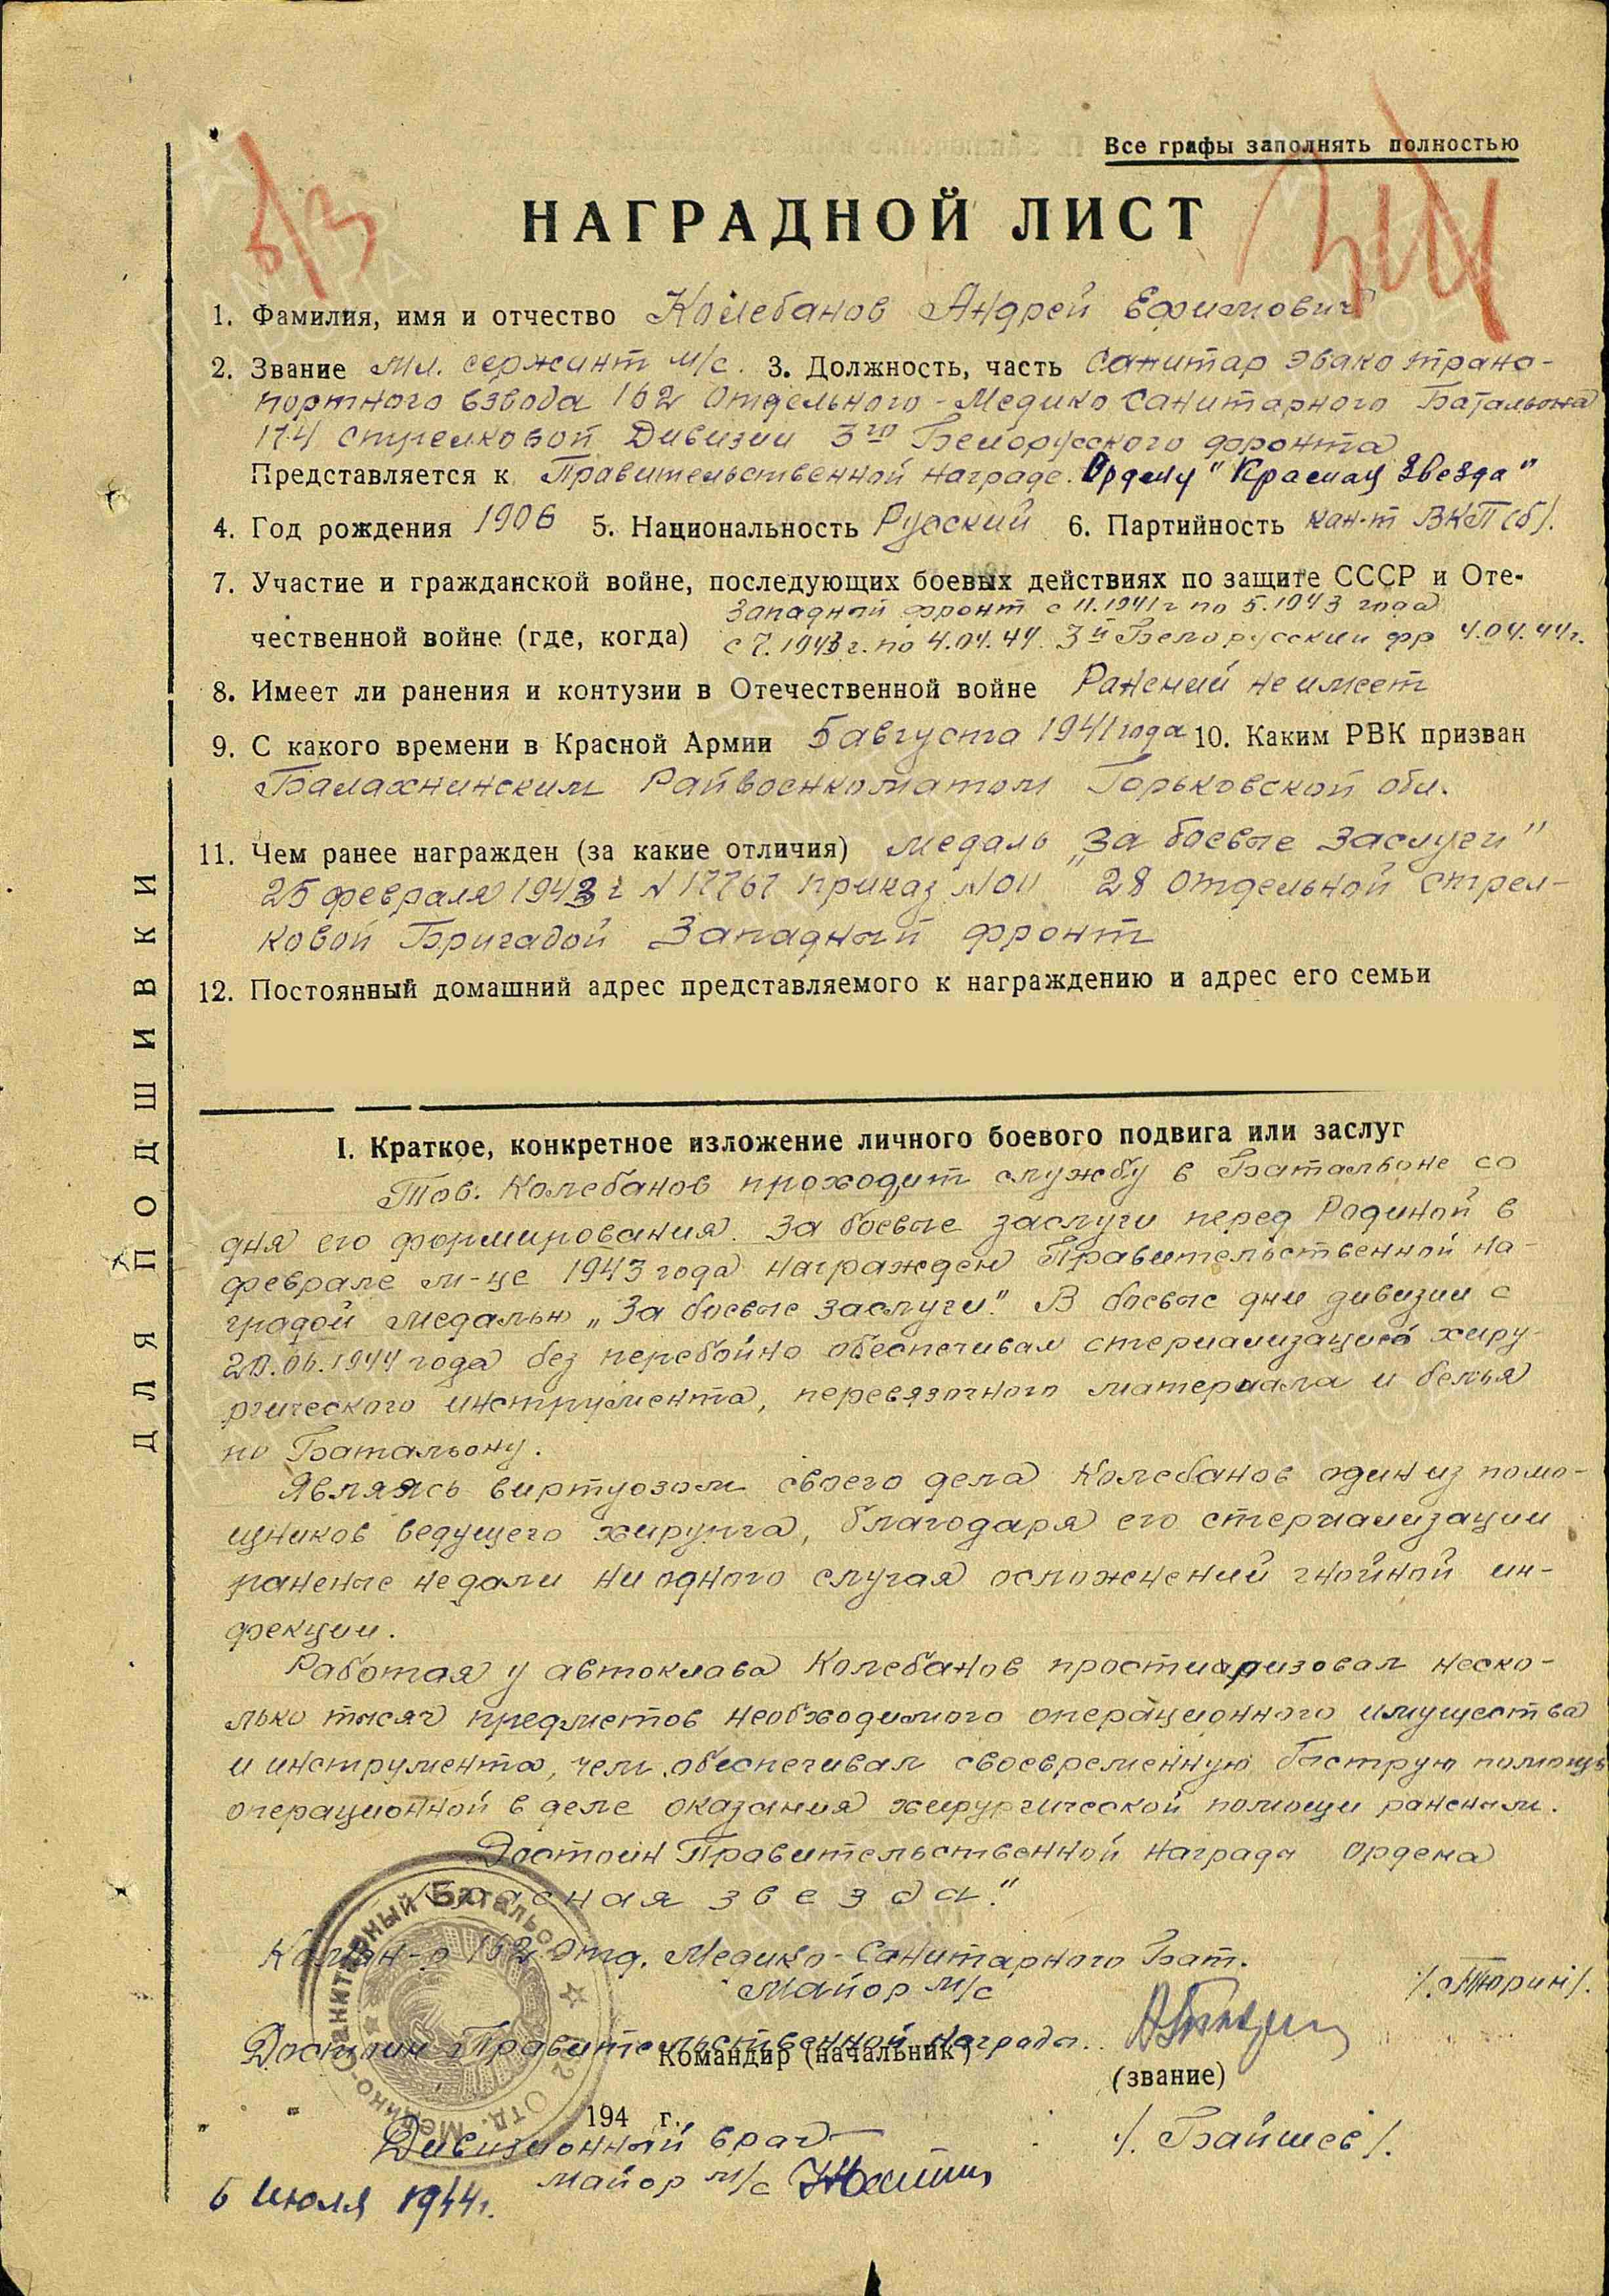 Все графы заполнять полностью
НАГРАДНОЙ ЛИСТ
1. Фамилия, имя и отчество Колебанов Андрей Ефимович
2. Звание Мл. сержант м/с. 3. Должность, часть Санитар эвако транс-
портного взвода 162 Отдельного-Медико Санитарного Батальона
174 Стрелковой Дивизии 3го Белорусского фронта
Представляется к Правительственной награде. Ордену "Красная Звезда"
4. Год рождения 1906 5. Национальность Русский 6. Партийность кан-т ВКП(б).
7. Участие и гражданской войне, последующих боевых действиях по защите СССР и Оте-
Западный фронт с 11.1941 г по 5.1943 года
чественной войне (где, когда) с 7.1943 г. по 4.04.44. 3й Белорусский фр 4.04.44г.
8. Имеет ли ранения и контузии в Отечественной войне Ранений не имеет
9. С какого времени в Красной Армии 5 августа 1941 года 10. Каким РВК призван
Балахнинским Райвоенкоматом Горьковской обл.
11. Чем ранее награжден (за какие отличия) медаль „За боевые заслуги"
25 февраля 1943 г N 17767 приказ №011 28 Отдельной стрел-
ковой Бригадой Западный фронт
12. Постоянный домашний адрес представляемого к награждению и адрес его семьи
I. Краткое, конкретное изложение личного боевого подвига или заслуг
Тов. Колебанов проходит службу в Батальоне со
дня его формирования. За боевые заслуги перед Родиной в
феврале м-це 1943 года награжден Правительственной на-
градой медалью „За боевые заслуги." В боевые дни дивизии с
20.06.1944 года без перебойно обеспечивал стериализацию хиру-
ргического инструмента, перевязочного материала и белья
по Батальону.
Являясь виртуозом своего дела Колебанов один из помо-
щников ведущего хирурга, благодаря его стериализации
раненые не дали ни одного случая осложнений гнойной ин-
фекции.
Работая у автоклава Колебанов простиаризовал неско-
лько тысяч предметов необходимого операционного имущества
и инструмента, чем обеспечивал своевременную быструю помощь
операционной в деле оказания хирургической помощи раненым.
Достоин Правительственной награды ордена
"Красная звезда."
Коман-р 162 Отд. Медико-Санитарного Бат.
Майор м/с /.Тюрин/.
Достоин Правительственной награды.
Командир (начальник)
(звание)
194 г.
Дивизионный врач
майор м/с /. Байшев/.
6 Июля 1944г.
Медико-Санитарный Батальон
162 Отд.
ДЛЯ ПОДШИВКИ